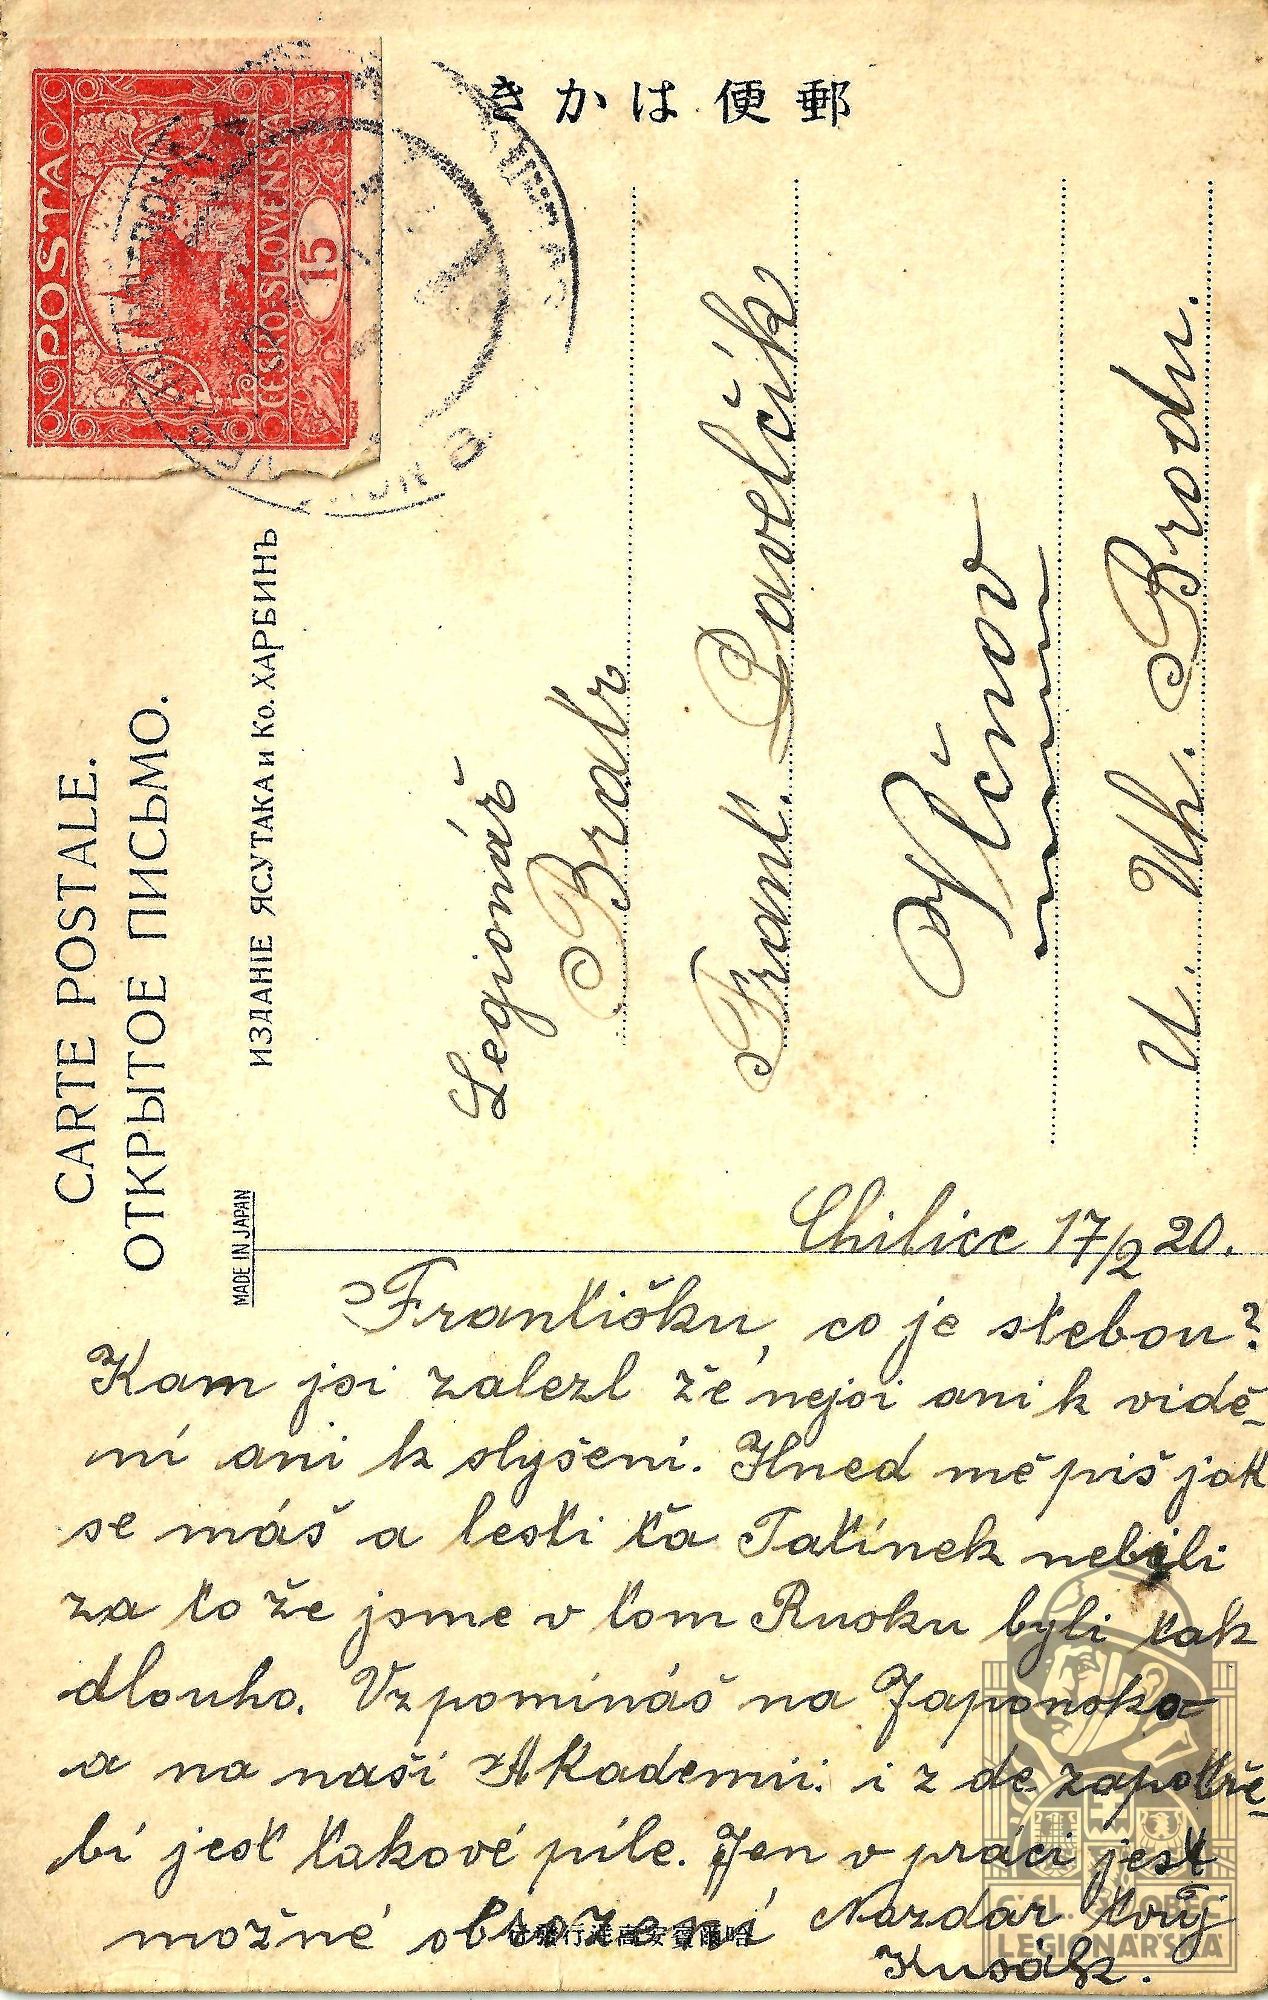 郵便はかき
CARTE POSTALE.
ОТКРЫТОЕ ПИСЬМО.
ИЗДАНІЕ ЯСУТАКА и Ко. ХАРБИНЪ
MADE IN JAPAN
POSTA
ČESKO-SLOVENSKÁ
15
Legionář
Bratr
Frant. Pavelčík
Vlčnov
u. Uh. Brodu.
Chilice 17/2 20.
Františku, co je stebou?
Kam jsi zalezl že nejsi ani k vidě-
ní ani k slyšení. Hned mě piš jak
se máš a lesti ťa Tatínek nebili
za to že jsme v tom Rusku byli tak
dlouho. Vzpomínáš na Japonsko
a na naši Akademii. i z de zapotře-
bí jest takové píle. Jen v práci jest
možné obrození Nazdar tvůj
Kusák.
哈爾賓安高洋行發行
ČSL. OBEC
LEGIONÁŘSKÁ